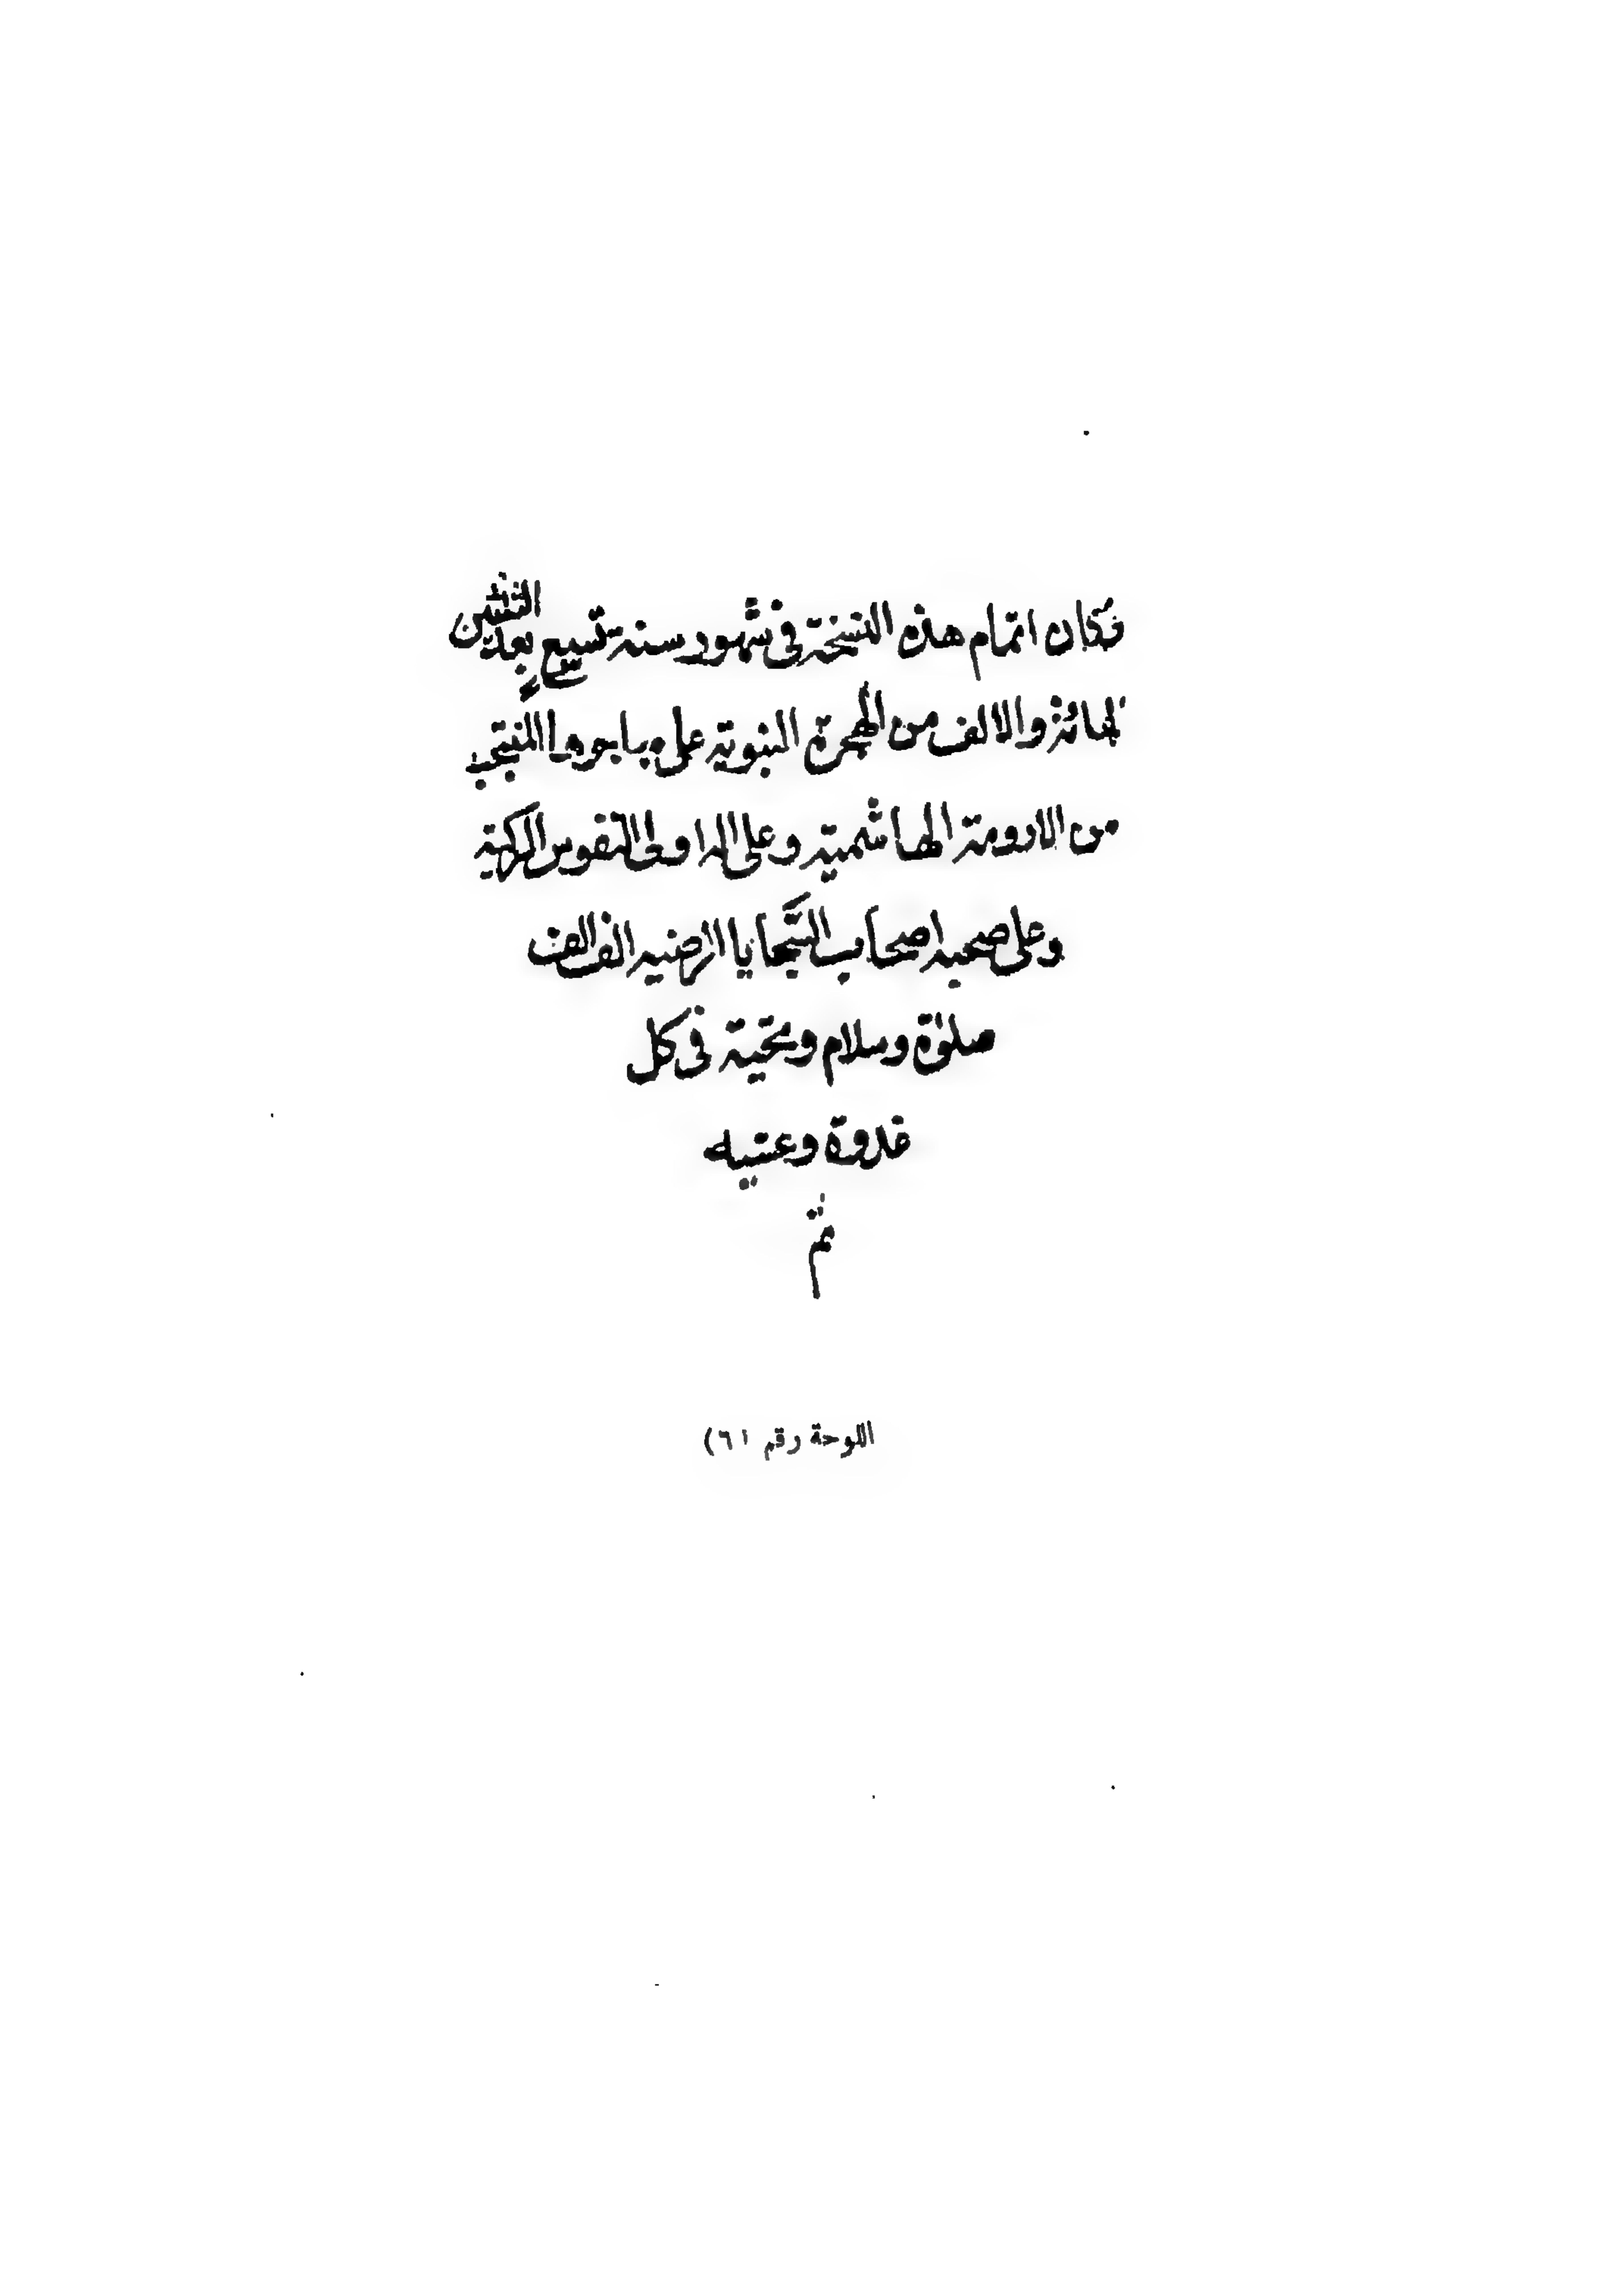 وكان اتمام هذه النسخة في شهور سنة تسع بعد
المائة والالف من الهجرة النبوية على المنتجب
من الارومة الهاشمية وعلى اله اولى النفوس الزكية
وعلى صحبه اصحاب السَّجايا الرضيه الف الف
صلوٰة وسلام وتحية فى كل
غدوة وعشيه
تم
اللوحة رقم ٦١)